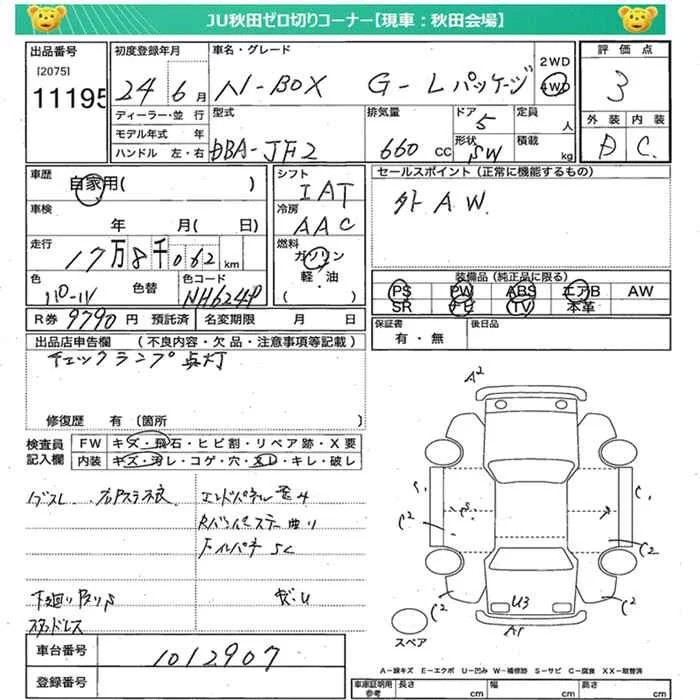 JU秋田ゼロ切りコーナー【現車：秋田会場】
出品番号 初度登録年月 車名・グレード 2WD 評価点
[2075]
11195 24 6月 N-BOX G-Lパッケージ 4WD 3
ディーラー・並行 型式 排気量 ドア 定員 外装 内装
モデル年式 年 5 人
ハンドル 左・右 DBA-JF2 660cc 形状 SW 積載 kg C
車歴 自家用( ) シフト IAT セールスポイント(正常に機能するもの)
車検 年 月( 日) 冷房 AAC 外AW
走行 17万8千062km 燃料 ガソリン
軽・油
( )
色 色替 色コード NH624P
装備品(純正品に限る)
PS PW ABS エアB AW
SR ナビ TV 本革
R券 9790円 預託済 名変期限 月 日
保証書 有・無 後日品
出品店申告欄 (不良内容・欠品・注意事項等記載)
チェックランプ点灯
修復歴 有〔箇所 〕
検査員記入欄 FW キズ・飛石・ヒビ割・リペア跡・X要
内装 キズ・汚レ・コゲ・穴・スレ・キレ・破レ
A2
C2
C2
C2
C2
U3
スペア
スタッドレス
車台番号 1012907
登録番号
A－線キズ E－エクボ U－凹み W－補修跡 S－サビ C－腐食 XX－取替済
車庫証明用参考 長さ cm 幅 cm 高さ cm